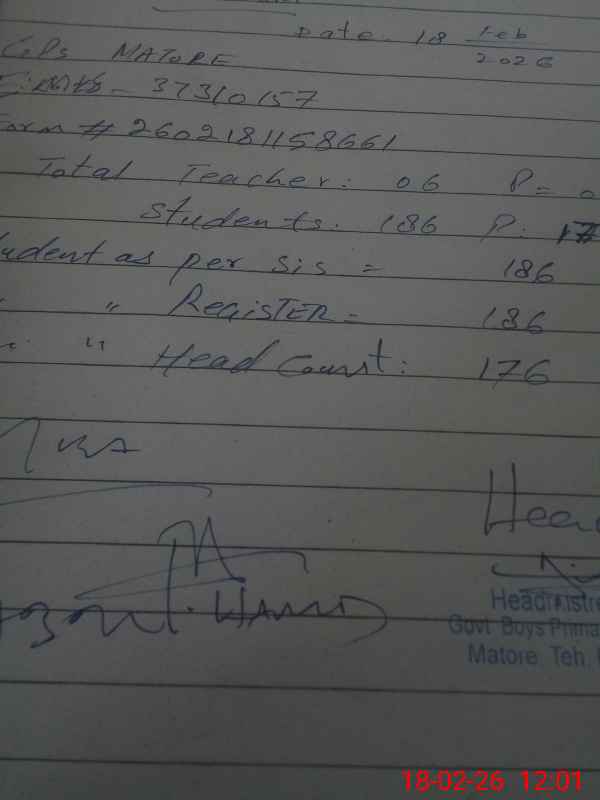 Date. 18 Feb 2026
GPs MATORE
37310157
Form # 2602181158661
Total Teacher: 06 P= 0
Students: 186 P: 17
udent as per sis = 186
" " REGISTER = 186
" " Head Count: 176
Hea
HAMID
Headmistre
Govt. Boys Prima
Matore Teh.
18-02-26 12:01